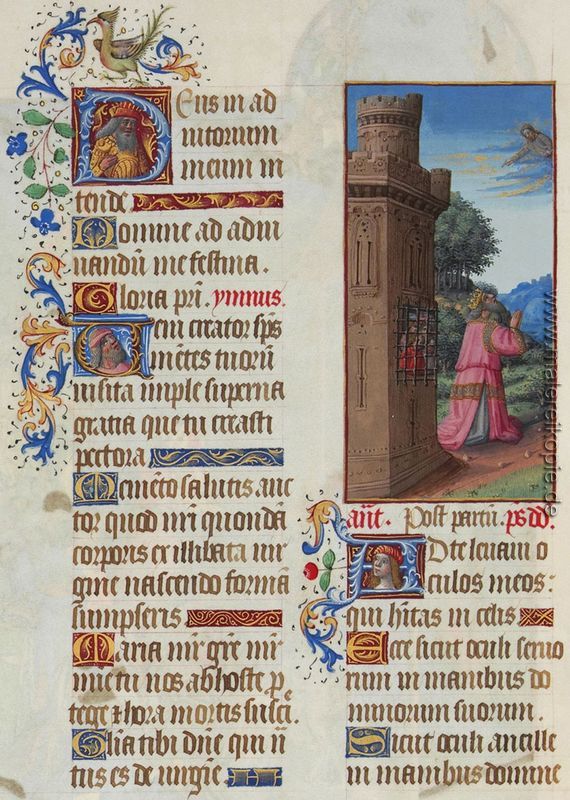 Deus in ad
iutorium
meum in
tende
Domine ad adiu
uandū me festina.
Gloria pri. ymnus.
Veni creator sp̄s
mētes tuorū
uisita imple superna
gratia que tu creasti
pectora
Memēto salutis auc
tor quod nri quondā
corporis ex illibata uir
gine nascendo formā
sumpseris
Maria mr̄ grē mr̄
mie tu nos ab hoste p̄
tege & hora mortis susci.e
Gl̄ia tibi dn̄e qui n̄
tus es de uirgīe
ant̄. Post partū. ps dd̄.
Ad te leuaui o
culos meos:
qui h̄itas in celis
Ecce sicut oculi seruo
rum in manibus do
minorum suorum.
Sicut oculi ancille
in manibus domine
www.malereikopie.de